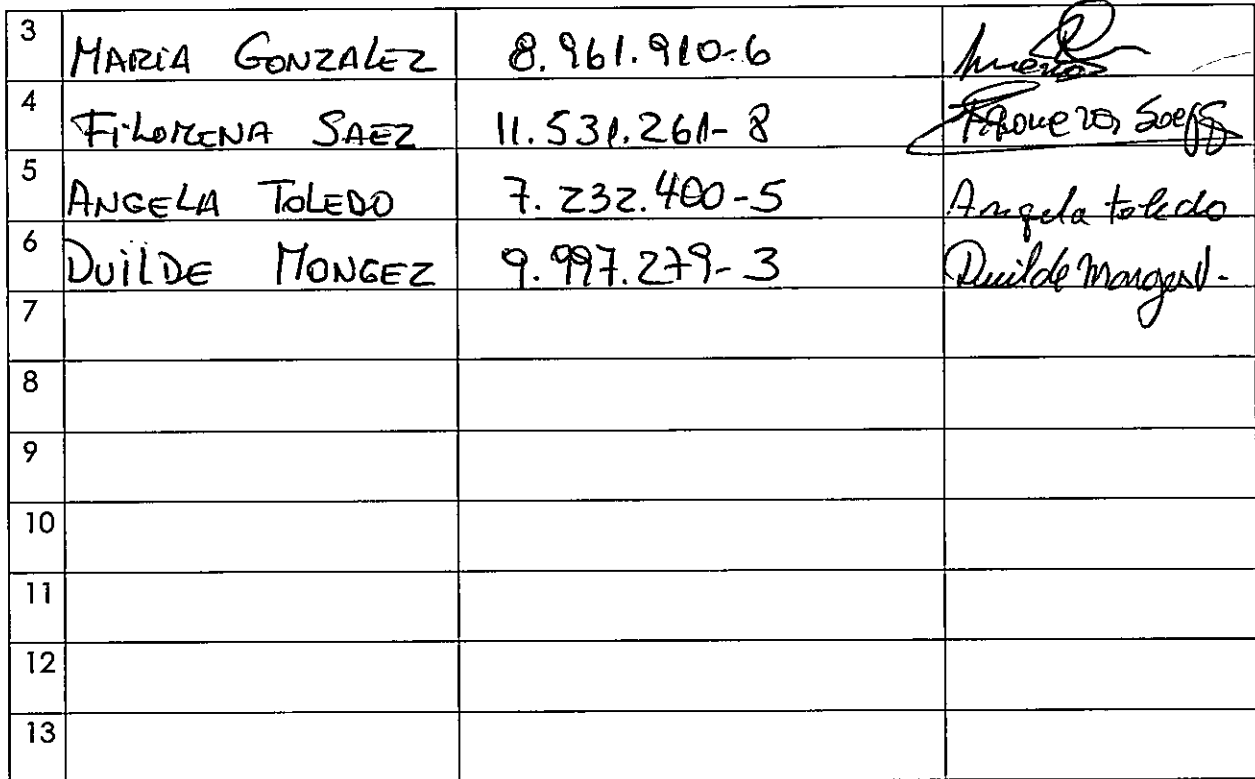 3 MARIA GONZALEZ 8.961.910-6
4 FILOMENA SAEZ 11.531.261-8
5 ANGELA TOLEDO 7.232.400-5 Angela toledo
6 DUILDE MONGEZ 9.997.279-3 Duilde
7
8
9
10
11
12
13